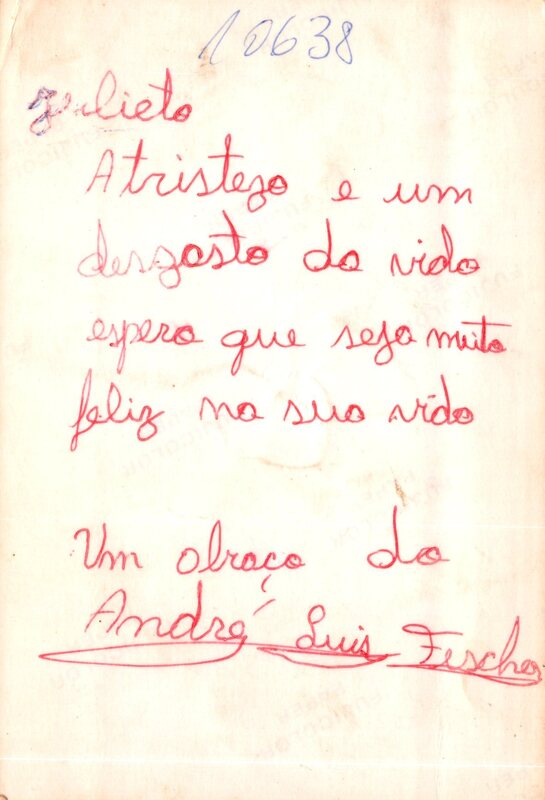 10638
Julieta
A tristeza e um
desgasto da vida
espero que seja muito
feliz na sua vida
Um abraço do
André Luis Fischer